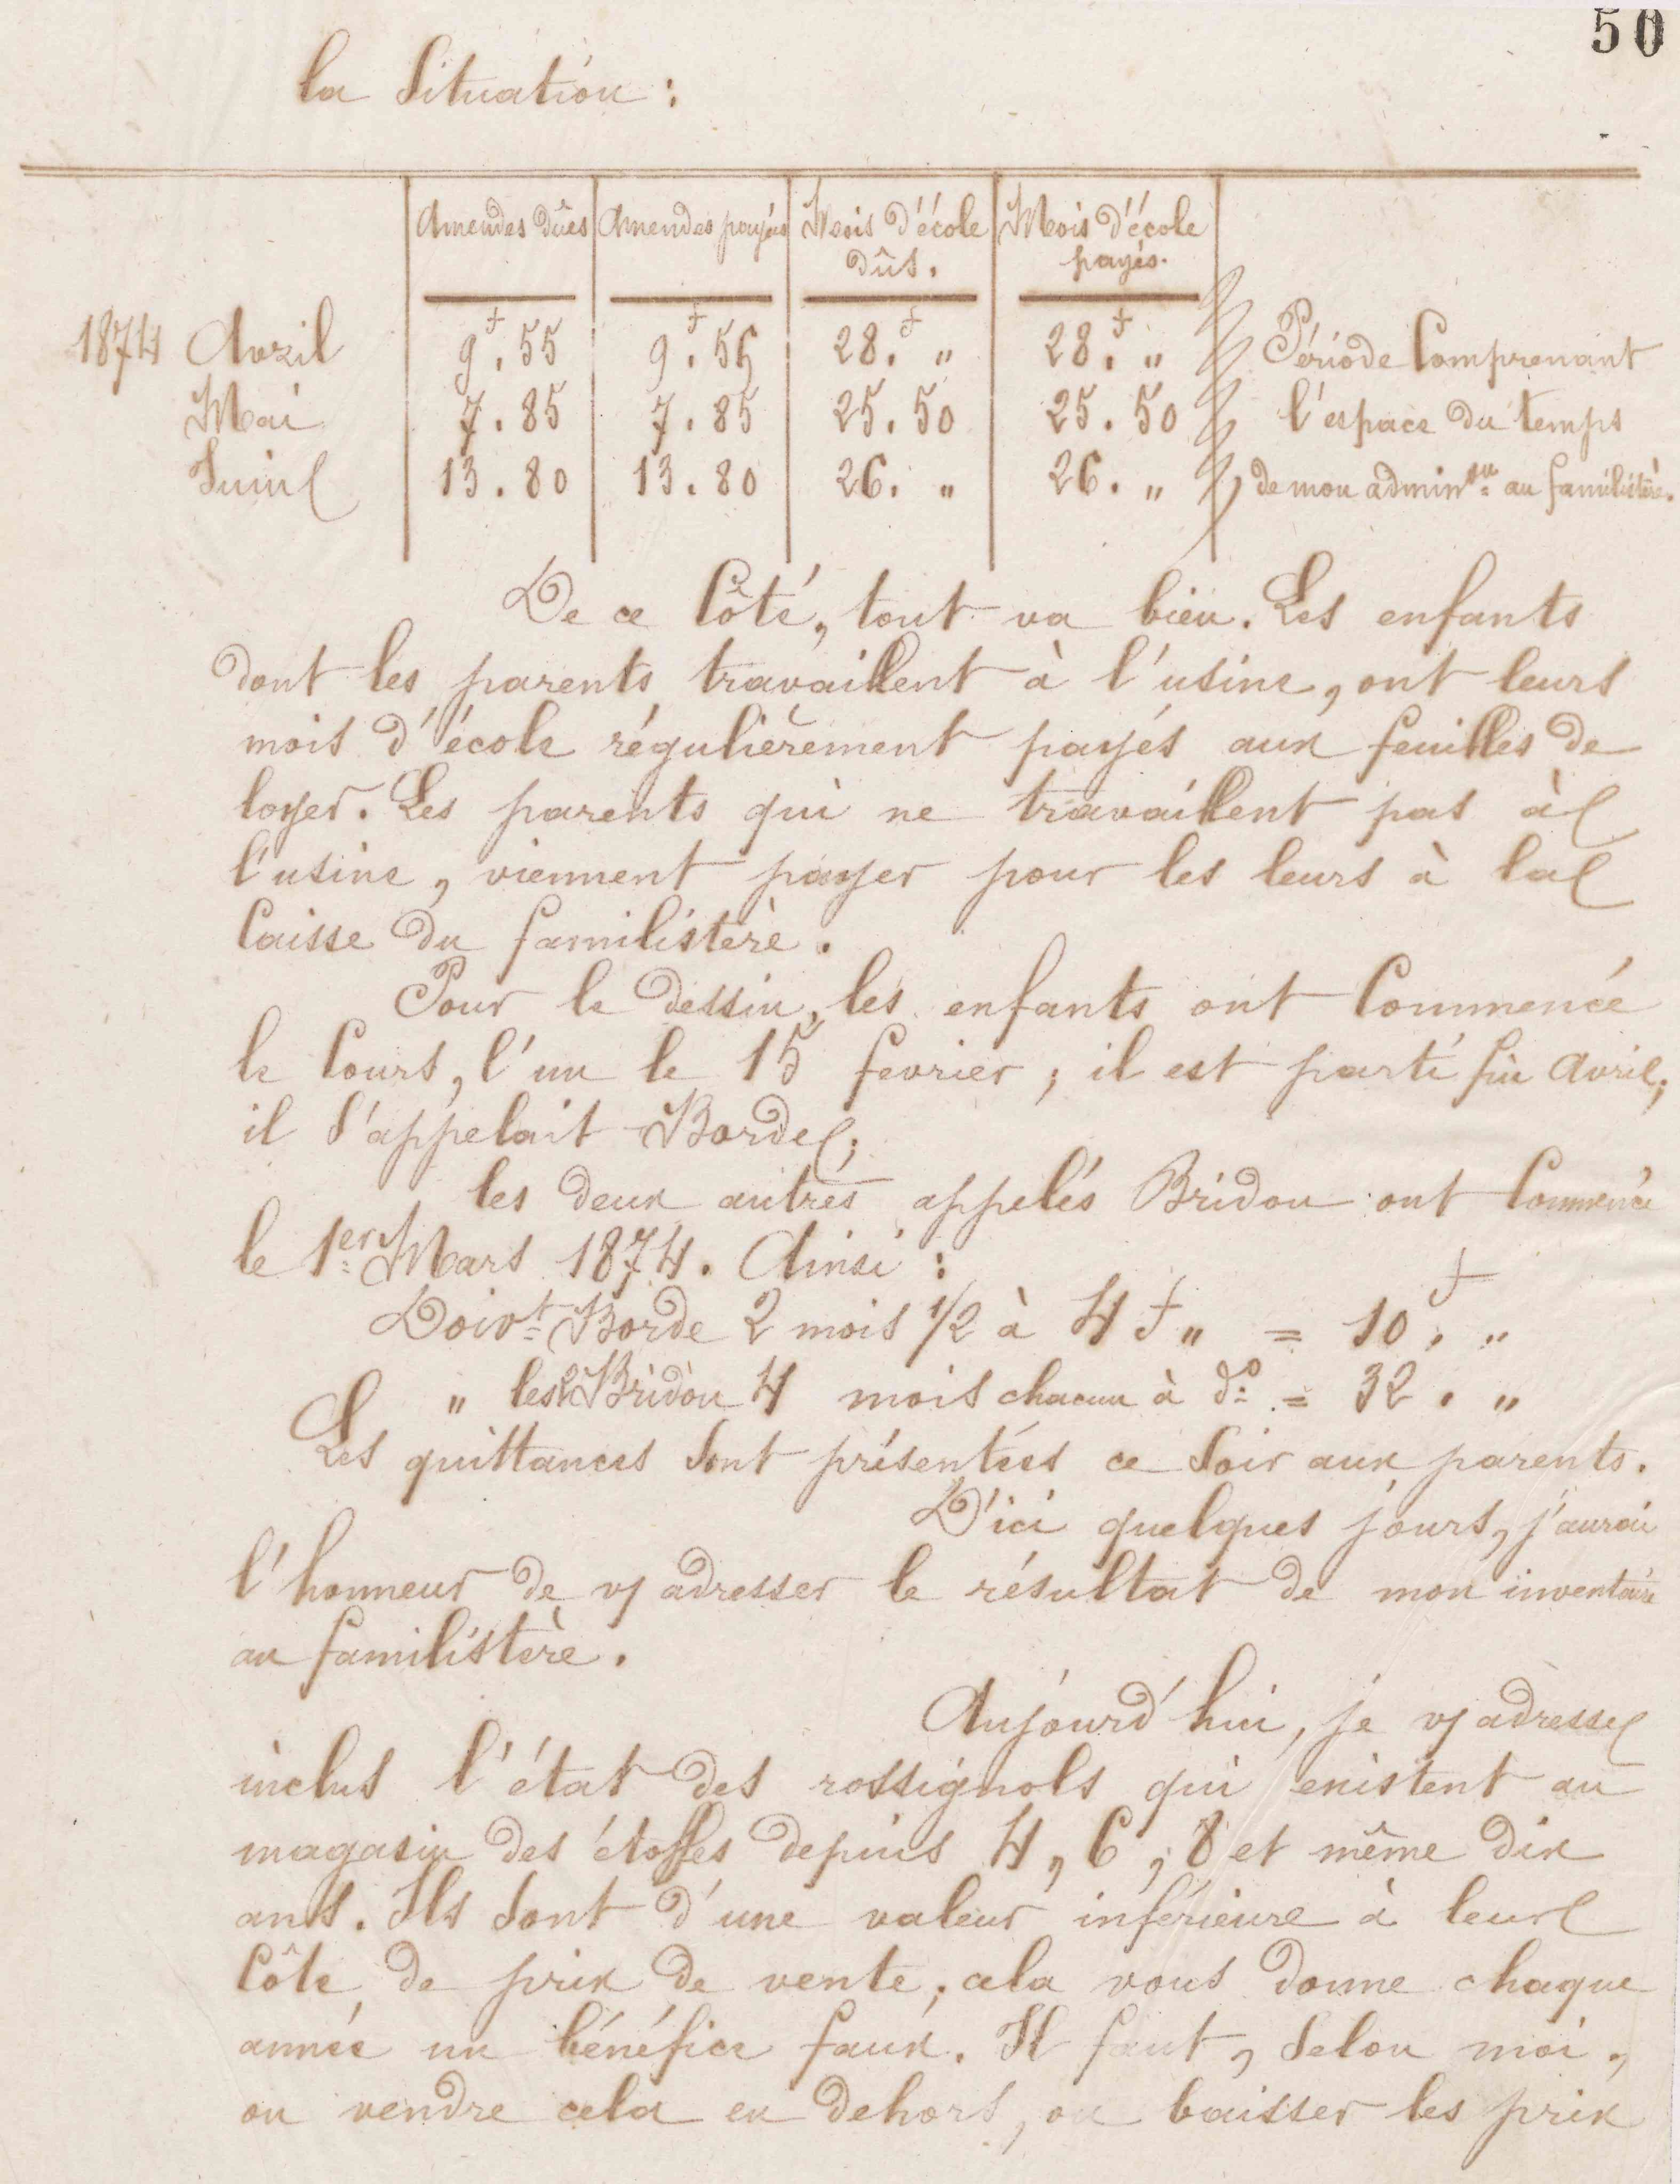 50
la Situation :
Amendes dûes Amendes payées Mois d'école dûs. Mois d'école payés.
1874 Avril 9f.55 9f.55 28f. „ 28f. „ Période Comprenant
Mai 7.85 7.85 25.50 25.50 l'espace du temps
Juin 13.80 13.80 26. „ 26. „ de mon admin.on au familistère.
De ce Côté, tout va bien. Les enfants
dont les parents travaillent à l'usine, ont leurs
mois d'école régulièrement payés aux feuilles de
loyer. Les parents qui ne travaillent pas à
l'usine, viennent payer pour les leurs à la
Caisse du familistère.
Pour le dessin, les enfants ont Commencé
le Cours, l'un le 15 fevrier ; il est parti fin Avril ;
il s'appelait Borde ;
les deux autres appelés Bridou ont Commencé
le 1er Mars 1874. Ainsi :
Doivt Borde 2 mois 1/2 à 4 f „ = 10f. „
„ les 2 Bridou 4 mois chacun à do = 32. „
Les quittances sont présentées ce soir aux parents.
D'ici quelques jours, j'aurai
l'honneur de v/ adresser le résultat de mon inventaire
au familistère.
Aujourd'hui, je v/ adresse
inclus l'état des rossignols qui existent au
magasin des étoffes depuis 4, 6, 8 et même dix
ans. Ils sont d'une valeur inférieure à leur
Côte de prix de vente ; cela vous donne chaque
année un bénéfice faux. Il faut, selon moi,
ou vendre cela en dehors, ou baisser les prix